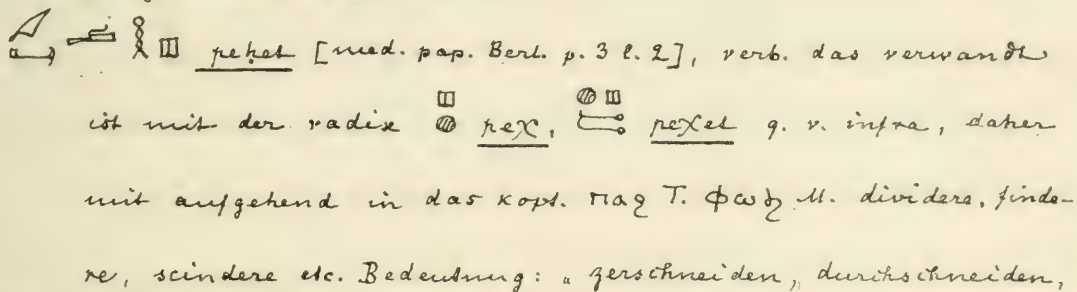 peḥet [med. pap. Berl. p. 3 l. 2], verb. das verwandt
ist mit der radix peχ, peχet q. v. infra, daher
mit aufgehend in das kopt. ⲡⲁϩ T. ⲫⲱϧ M. dividere, finde-
re, scindere etc. Bedeutung: „zerschneiden„ durchschneiden,